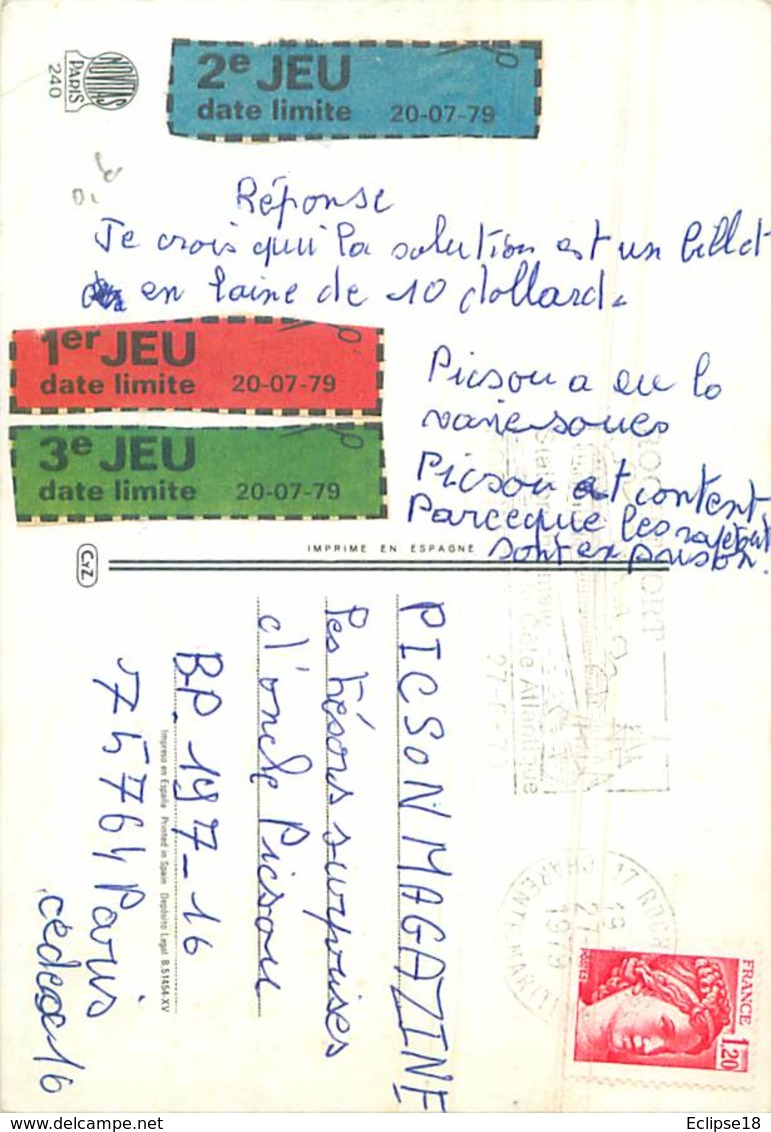 NOVITAS
PARIS
240
2e JEU
date limite 20-07-79
Réponse
Je crois qui la solution est un billet
en laine de 10 dollard.
1er JEU
date limite 20-07-79
3e JEU
date limite 20-07-79
Picsou a eu la
Picsou et content
Parceque les rapetout
sont en prison.
CyZ
IMPRIME EN ESPAGNE
PICSON MAGAZINE
les trésors surprises
d'oncle Picsou
BP. 197-16
75764 Paris
cédexe 16
Impreso en España Printed in Spain Depósito Legal B.51454-XV
Côte Atlantique
17 ROCH
CHARENTE-MARIT
19
27
1979
FRANCE
1,20
POSTES
Eclipse18